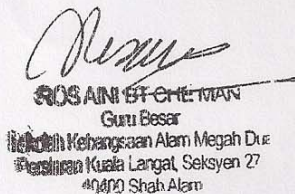 ROSAINI BT CHE MAN
Guru Besar
Sekolah Kebangsaan Alam Megah Dua
Persiaran Kuala Langat, Seksyen 27
40400 Shah Alam